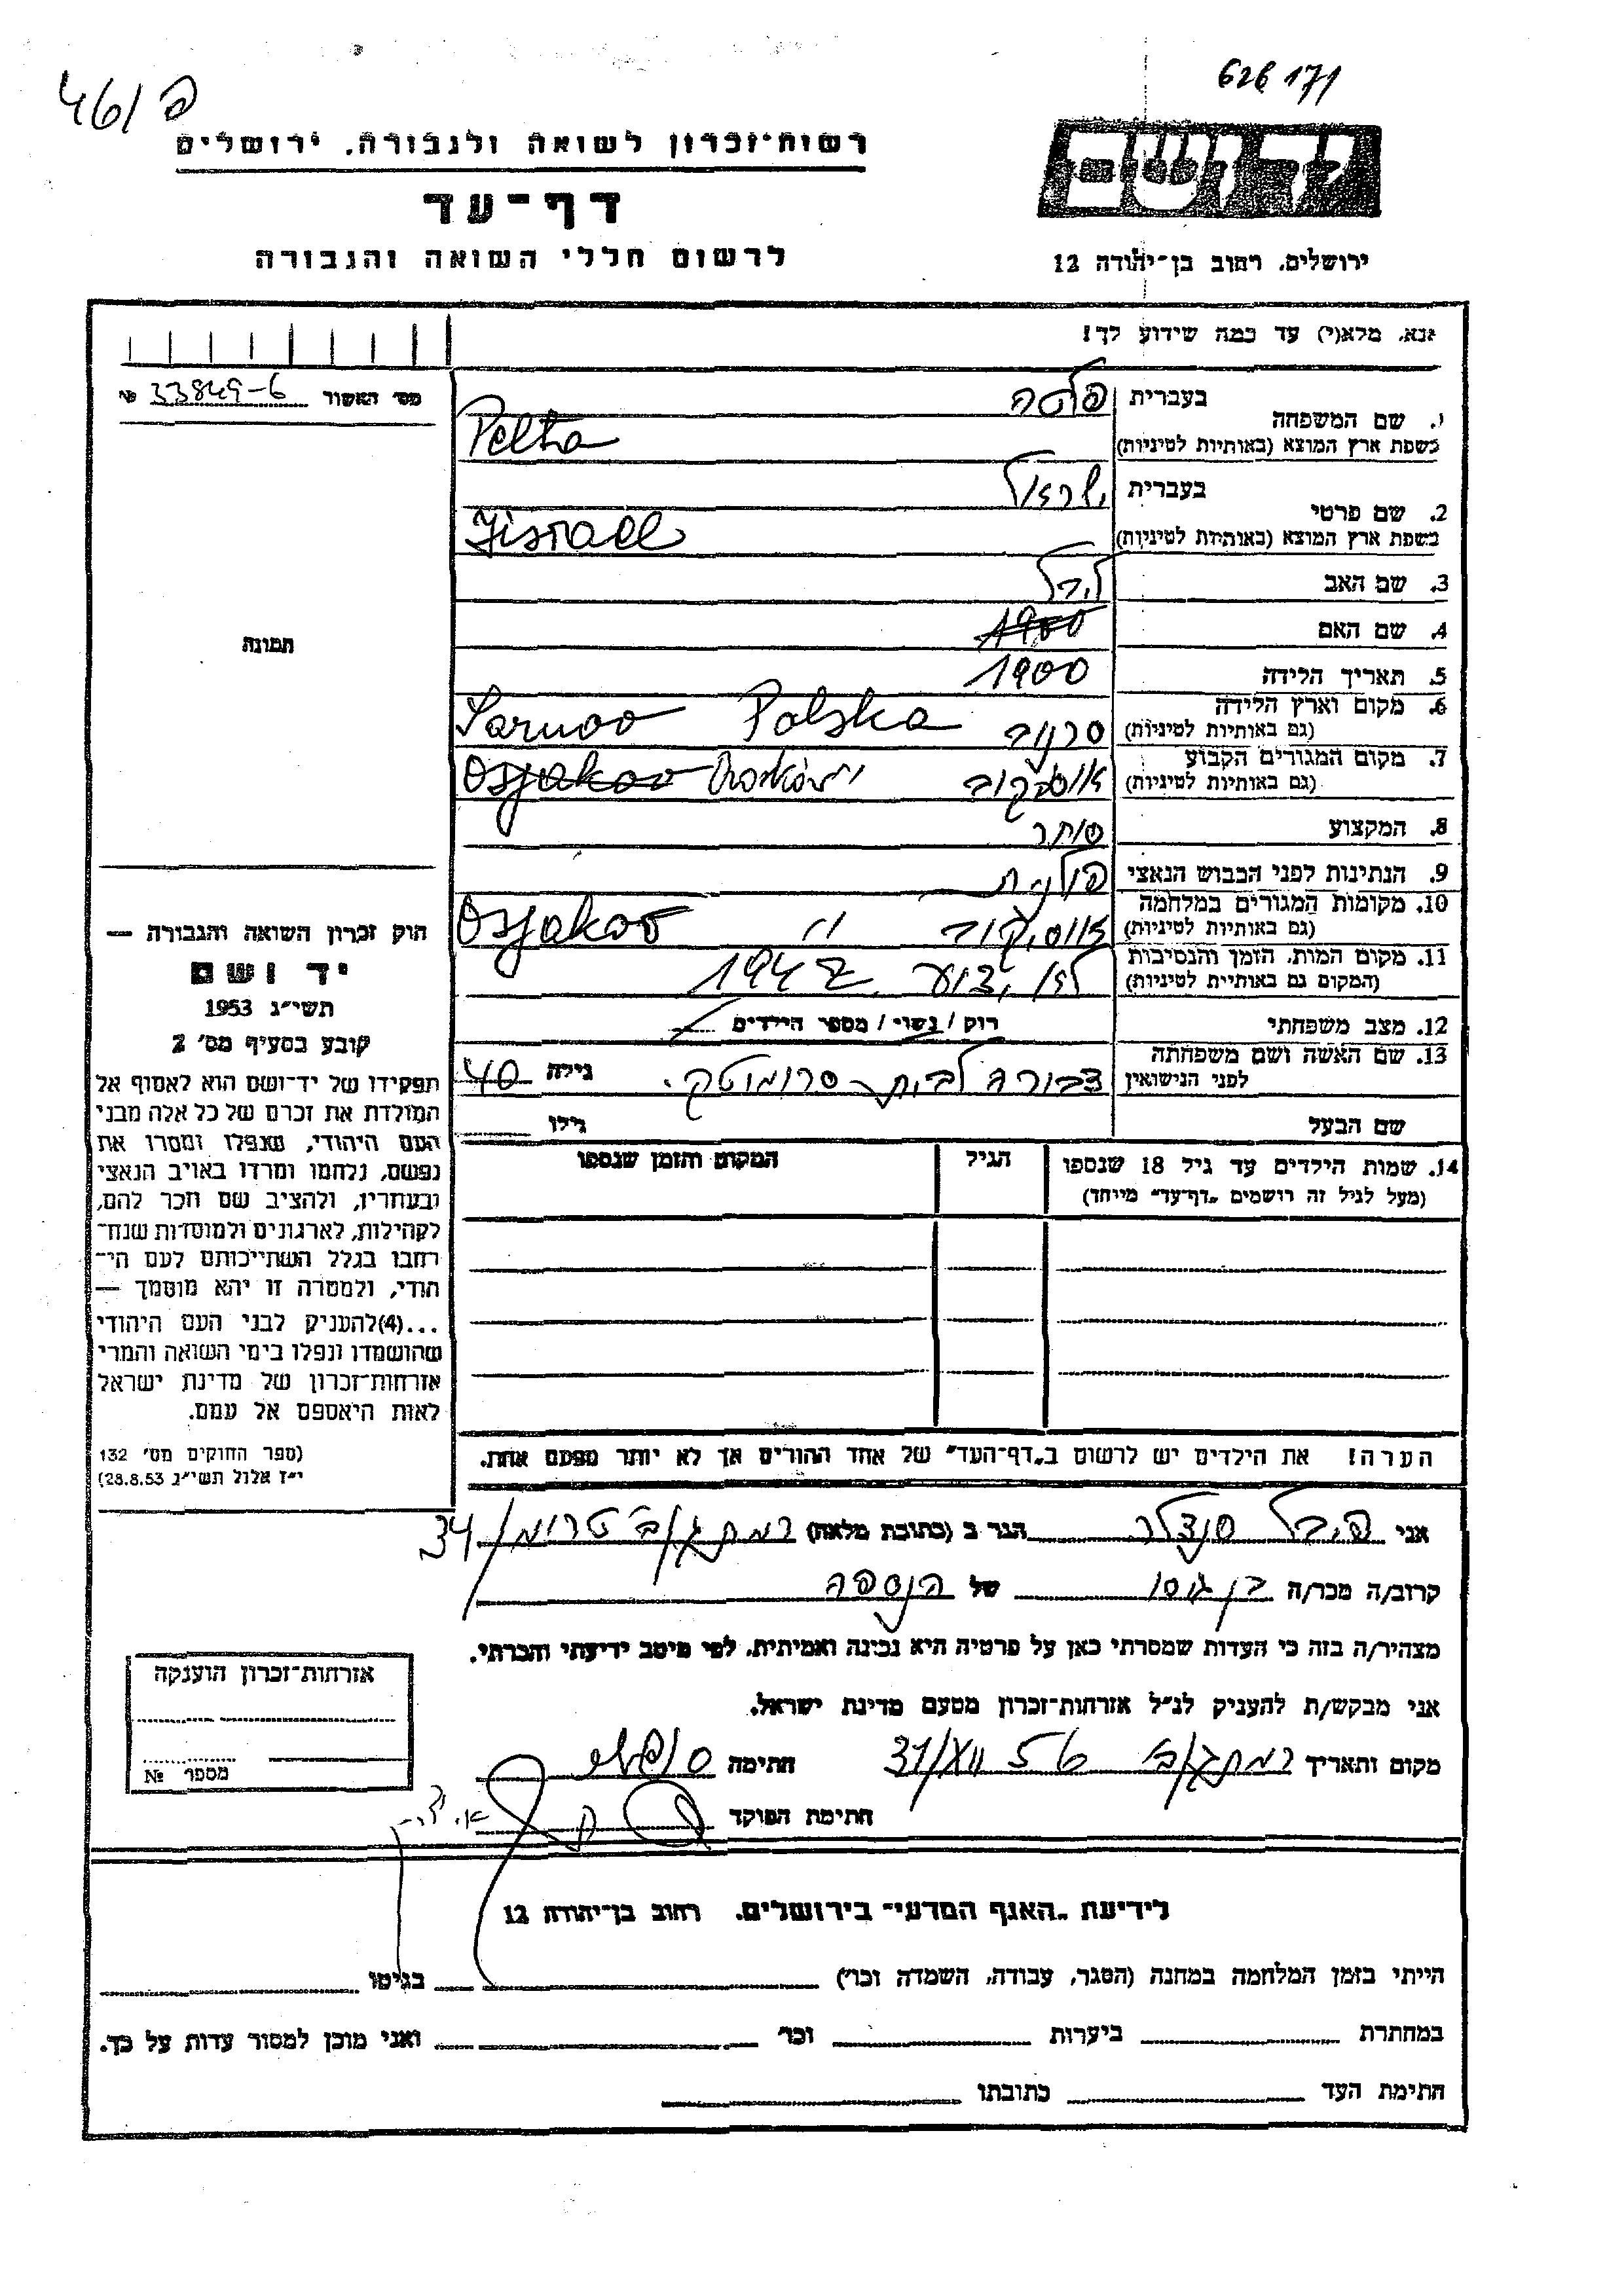 461/פ
626 171
רשות־זכרון לשואה ולגבורה, ירושלים
דף־עד
לרשום חללי השואה והגבורה
ידושם
ירושלים, רחוב בן־יהודה 12
אנא, מלא(י) עד כמה שידוע לך!
מס׳ האשור 33849-6 №
1. שם המשפחה
בעברית פלטה
בשפת ארץ המוצא (באותיות לטיניות) Pelta
2. שם פרטי
בעברית ישראל
בשפת ארץ המוצא (באותיות לטיניות) Jisrael
3. שם האב
4. שם האם 1900
5. תאריך הלידה 1900
6. מקום וארץ הלידה
(גם באותיות לטיניות) סרנוב Sarnoo Polska
7. מקום המגורים הקבוע
(גם באותיות לטיניות) Osjakoo
8. המקצוע סוחר
9. הנתינות לפני הכבוש הנאצי פולנית
10. מקומות המגורים במלחמה
(גם באותיות לטיניות) אוסיקוב " Osjakoo
11. מקום המות, הזמן והנסיבות
(המקום גם באותיות לטיניות) לא ידוע 1942
12. מצב משפחתי רוק / נשוי / מספר הילדים
13. שם האשה ושם משפחתה
לפני הנישואין דבורה לבית גילה 40
שם הבעל גילו
14. שמות הילדים עד גיל 18 שנספו
(מעל לגיל זה רושמים „דף־עד” מייחד)
הגיל
המקום והזמן שנספו
הערה! את הילדים יש לרשום ב„דף־העד” של אחד ההורים אך לא יותר מפעם אחת.
תמונה
חוק זכרון השואה והגבורה —
יד ושם
תשי״ג 1953
קובע בסעיף מס׳ 2
תפקידו של יד־ושם הוא לאסוף אל
המולדת את זכרם של כל אלה מבני
העם היהודי, שנפלו ומסרו את
נפשם, נלחמו ומרדו באויב הנאצי
ובעוזריו, ולהציב שם וזכר להם,
לקהילות, לארגונים ולמוסדות שנח־
רבו בגלל השתייכותם לעם הי־
הודי, ולמטרה זו יהא מוסמך —
...(4) להעניק לבני העם היהודי
שהושמדו ונפלו בימי השואה והמרי
אזרחות־זכרון של מדינת ישראל
לאות היאספם אל עמם.
(ספר החוקים מס׳ 132
י״ז אלול תשי״ג 28.8.53)
אני הגר ב (כתובת מלאה) רמת גן 34
קרוב/ה מכר/ה בן גיסו של הנספה
מצהיר/ה בזה כי העדות שמסרתי כאן על פרטיה היא נכונה ואמיתית, לפי מיטב ידיעתי והכרתי.
אני מבקש/ת להעניק לנ״ל אזרחות־זכרון מטעם מדינת ישראל.
מקום ותאריך רמת גן חתימה
חתימת הפוקד
אזרחות־זכרון הוענקה
מספר №
לידיעת „האגף המדעי” בירושלים, רחוב בן־יהודה 12
הייתי בזמן המלחמה במחנה (הסגר, עבודה, השמדה וכו׳) בגיטו
במחתרת ביערות וכו׳ ואני מוכן למסור עדות על כך.
חתימת העד כתובתו